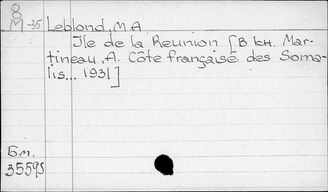 8
8
M -35 Leblond, M.A.
Ile de la Reunion [В кн. Mar-
tineau, A. Côte française des Soma-
lis... 1931]
Бм.
35595